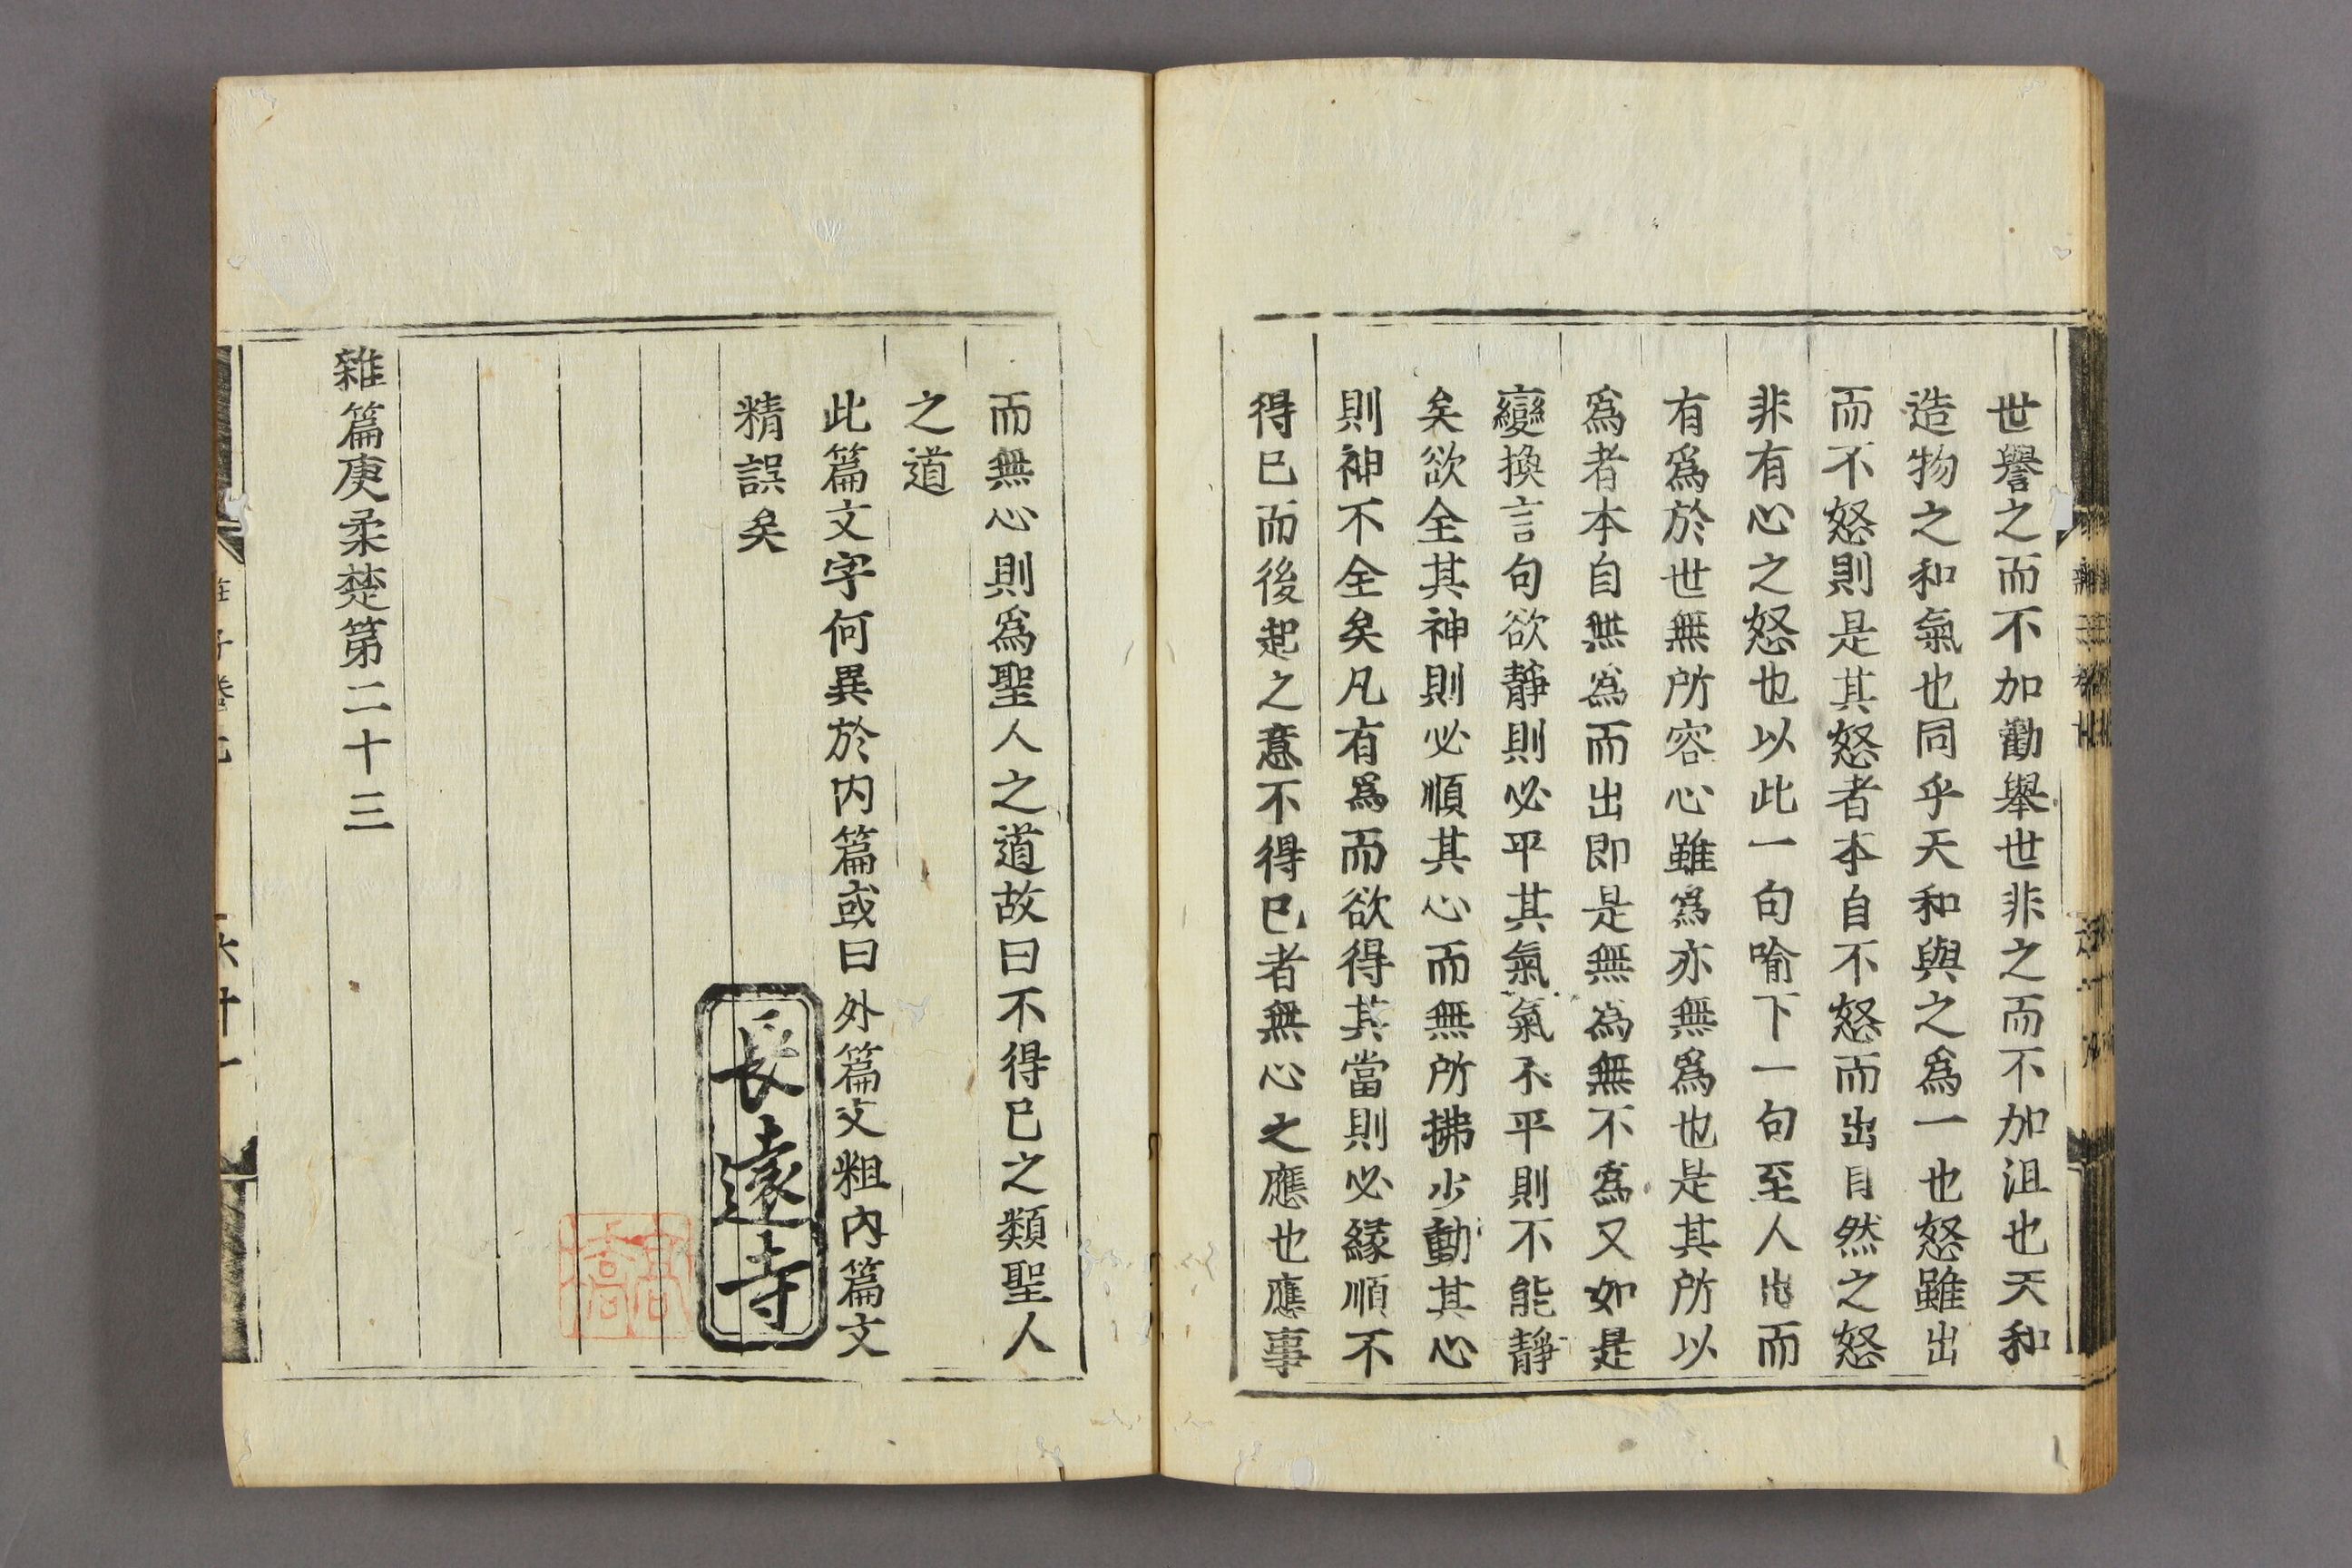 世譽之而不加勸舉世非之而不加沮也天和
造物之和氣也同乎天和與之爲一也怒雖出
而不怒則是其怒者本自不怒而出自然之怒
非有心之怒也以此一句喻下一句至人出而
有爲於世無所容心雖爲亦無爲也是其所以
爲者本自無爲而出即是無爲無不爲又如是
變換言句欲靜則必平其氣氣不平則不能靜
矣欲全其神則必順其心而無所拂少動其心
則神不全矣凡有爲而欲得其當則必緣順不
得已而後起之意不得已者無心之應也應事
而無心則爲聖人之道故曰不得已之類聖人
之道
此篇文字何異於内篇或曰外篇文粗内篇文
精誤矣
長遠寺
雜篇庚柔楚第二十三